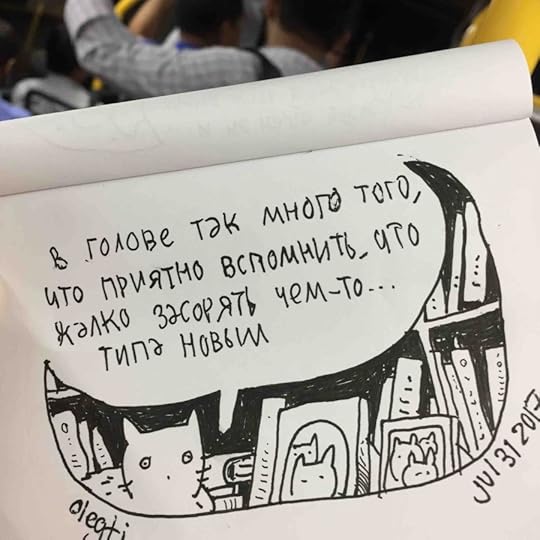 в голове так много того,
что приятно вспомнить, что
жалко засорять чем-то...
типа новым
olegti
Jul 31 2017